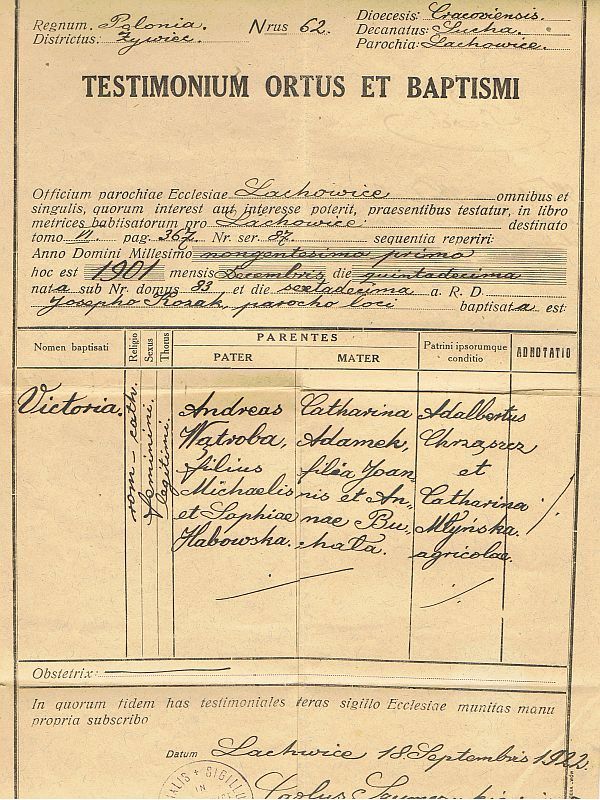 Regnum. Polonia.
Districtus: Żywiec.
Nrus 62.
Dioecesis: Cracoviensis.
Decanatus: Sucha.
Parochia: Lachowice.
TESTIMONIUM ORTUS ET BAPTISMI
Officium parochiae Ecclesiae Lachowice omnibus et
singulis, quorum interest aut interesse poterit, praesentibus testatur, in libro
metrices babtisatorum pro Lachowice destinato
tomo II pag. 367 Nr. ser. 87 sequentia reperiri:
Anno Domini Millesimo nongentesimo primo
hoc est 1901 mensis Decembris die quintadecima
nata sub Nr. domus 83 et die sextadecima a. R. D.
Josepho Kozak, parocho loci baptisata est:
Nomen baptisati
Religio
Sexus
Thorus
PARENTES
PATER
MATER
Patrini ipsorumque
conditio
ADNOTATIO
Victoria.
rom-cath.
feminini.
legitimi.
Andreas
Wątroba,
filius
Michaelis
et Sophiae
Habowska.
Catharina
Adamek,
filia Joan-
nis et An-
nae Bu-
hata.
Adalbertus
Chrząszcz
et
Catharina
Młyńska.
agricolae.
Obstetrix:
In quorum fidem has testimoniales teras sigillo Ecclesiae munitas manu
propria subscribo
Datum Lachwice 18 Septembris 1922
SIGILLU
IN
Carolus